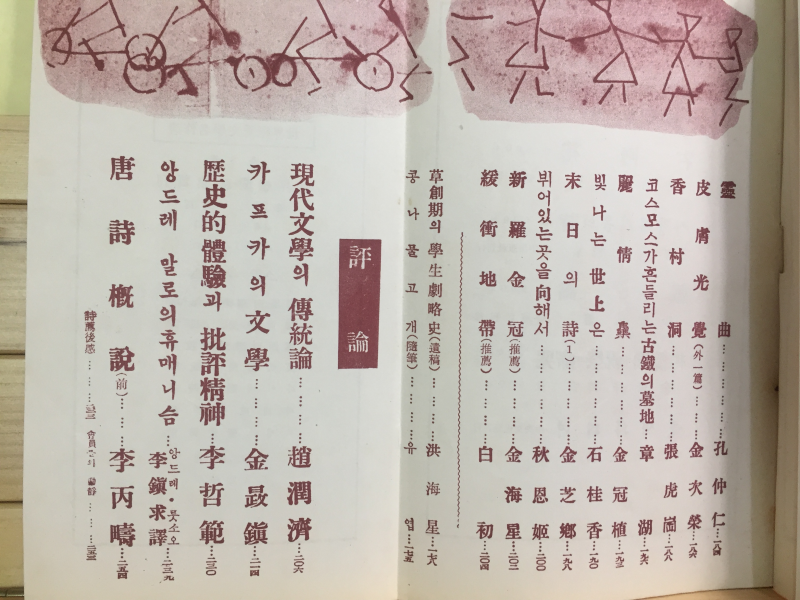 靈曲………孔仲仁…一八四
皮膚光覺(外一篇)……金次榮…一八六
香村洞………張虎崗…一八八
코스모스가흔들리는古鐵의墓地…章湖…一九六
麗情集………金冠植…一九二
빛나는世上은………石桂香…一九〇
末日의詩(1)………金芝鄕…一九八
뷔어있는곳을向해서………秋恩姬…二〇〇
新羅金冠(推薦)………金海星…二〇二
緩衝地帶(推薦)………白初…二〇四
草創期의 學生劇略史(遺稿)……洪海星…一六八
콩나물고개(隨筆)………유엽…一七五
評論
現代文學의 傳統論…趙潤濟…二〇六
카프카의文學………金晸鎭…二一四
歷史的體驗과 批評精神…李哲範…二二〇
앙드레 말로의휴매니슴…앙드레・룻소오
李鎭求譯…二三九
唐詩槪說(前)……李丙疇…二五四
詩薦後感………